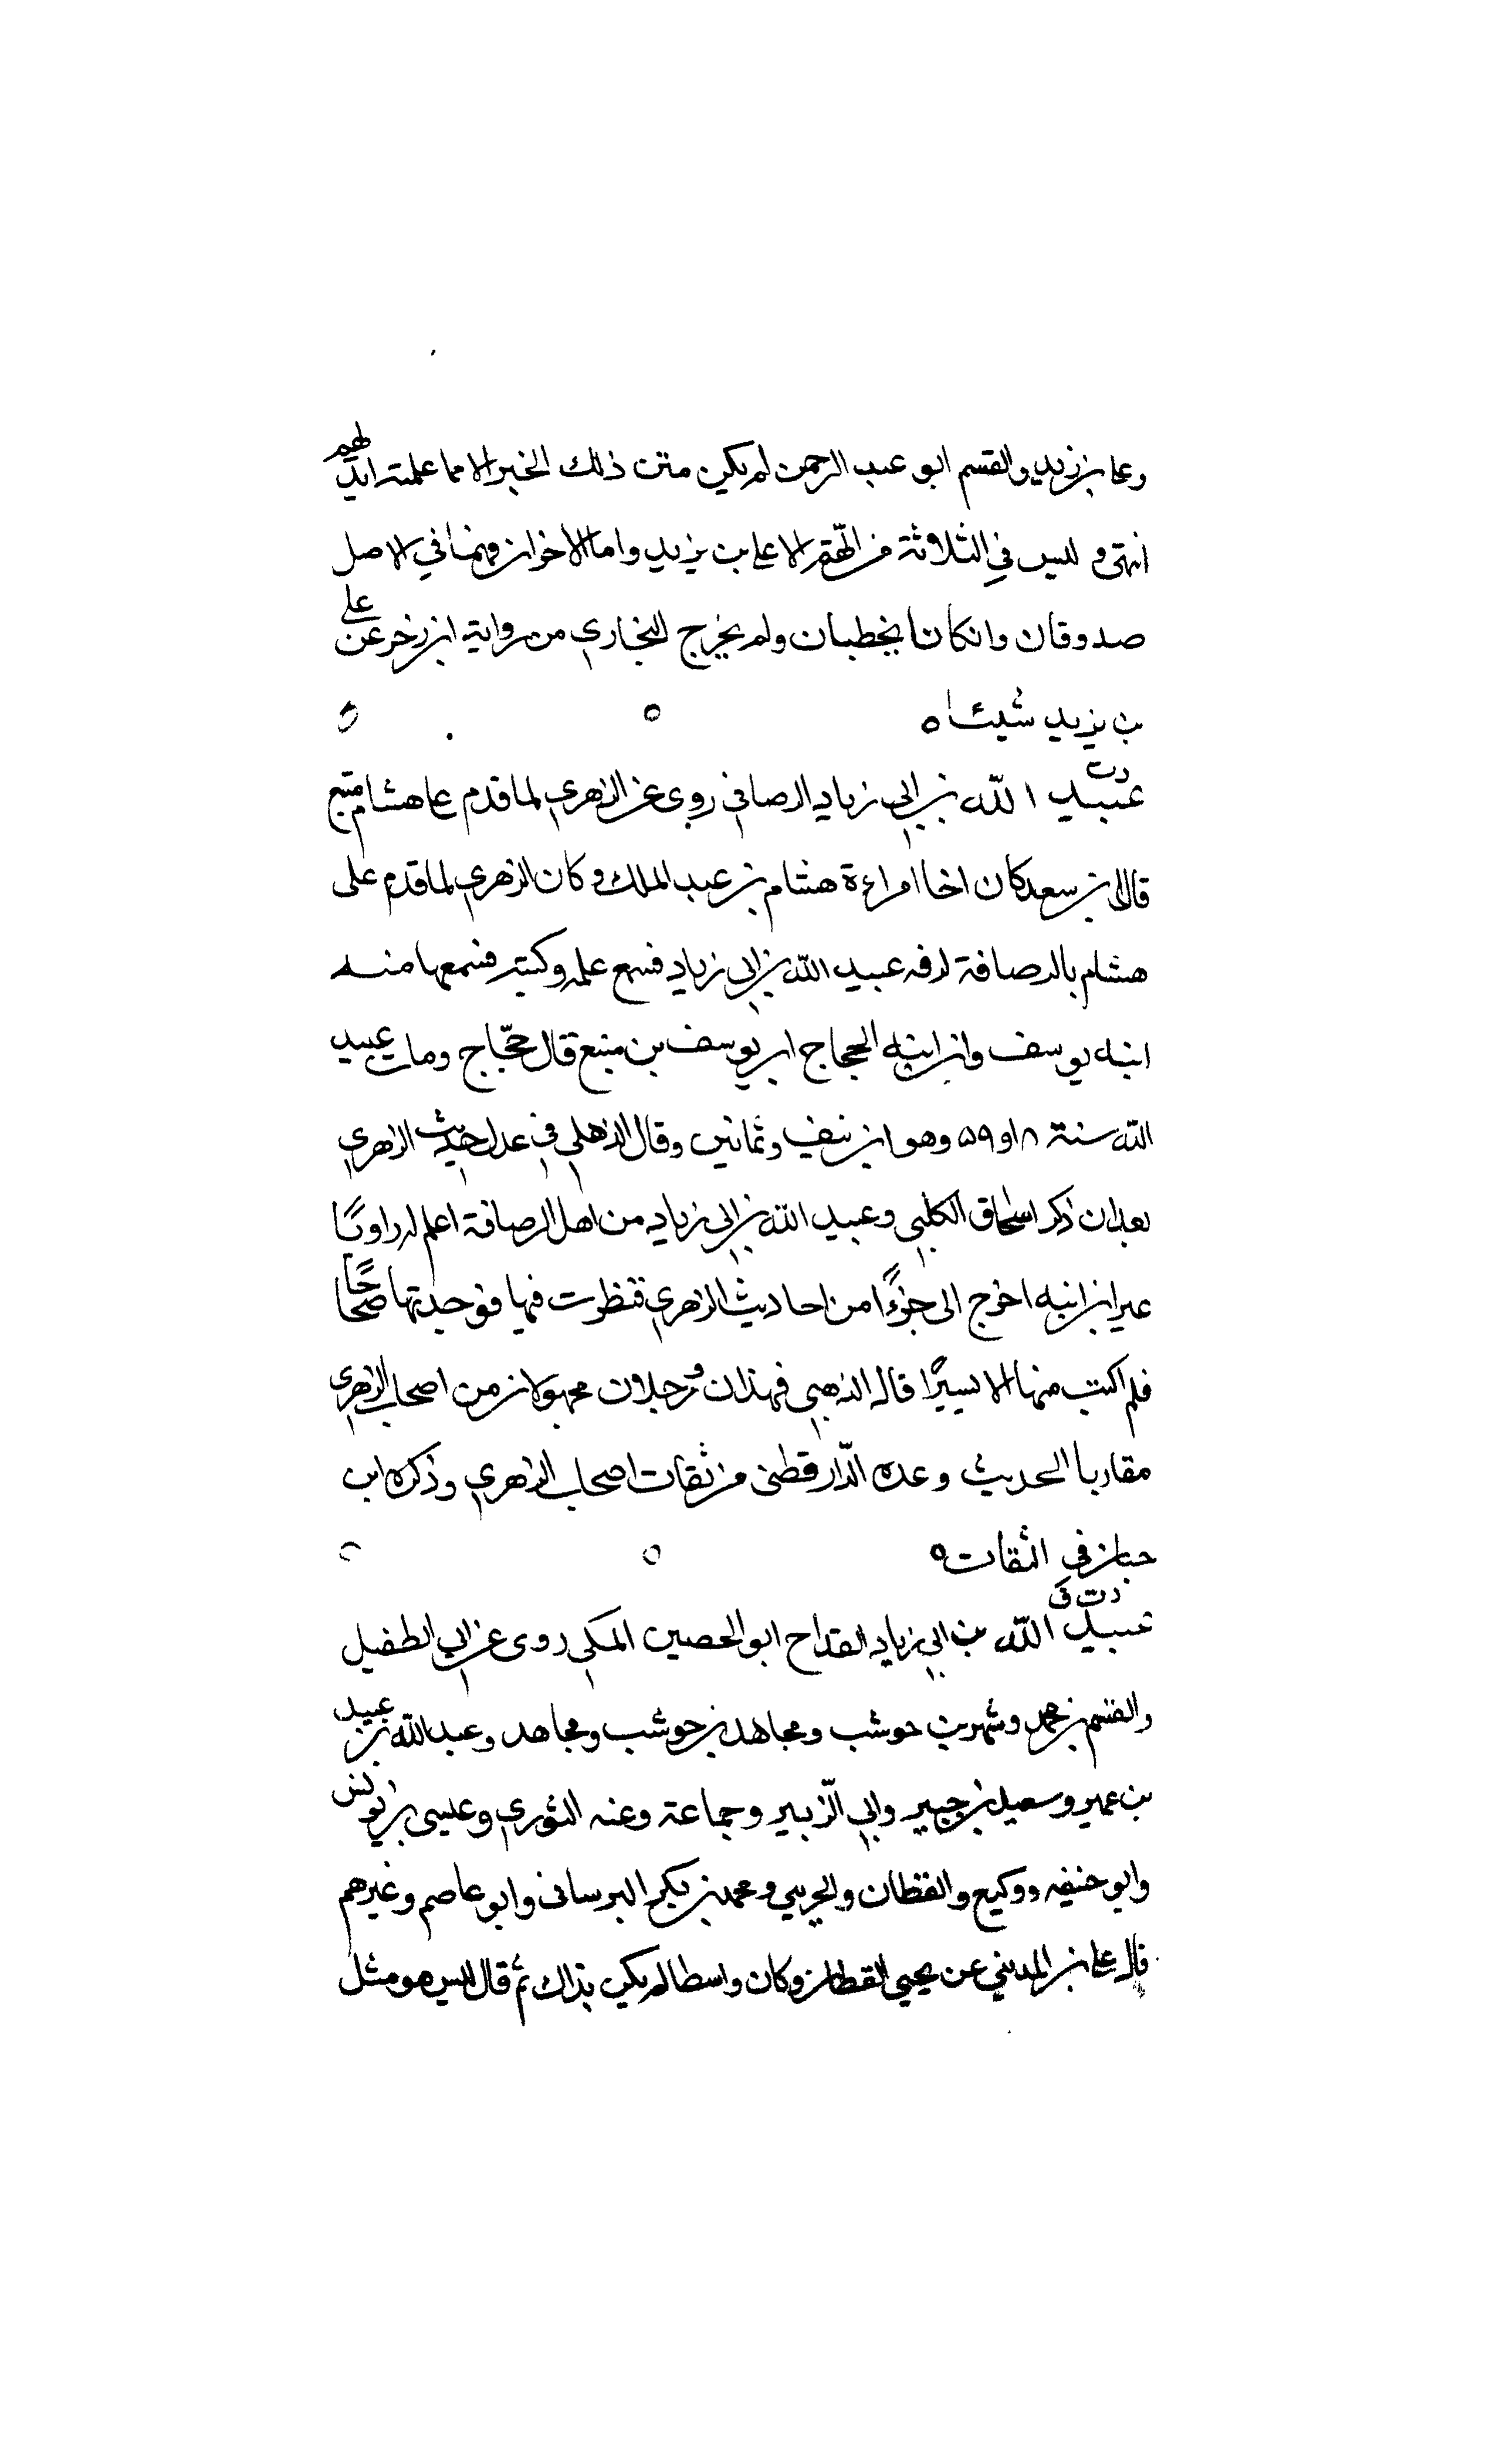 وعلى بن يزيد والقسم ابو عبد الرحمن لم يكن متن ذلك الخبر الا مما عملته ايديهم
انتهى وليس في الثلاثة من اتهم الا على بن يزيد واما الاخران فهما في الاصل
صدوقان وان كانا يخطيان ولم يخرج البخاري من رواية ابن زحر عن على
بن يزيد شيئا ه
عبيد الله بن ابي زياد الرصافي روى عن الزهري لما قدم على هشام منيع
قال ابن سعد كان اخا امراءة هشام بن عبد الملك وكان الزهري لما قدم على
هشام بالرصافة لزمه عبيد الله بن ابي زياد فسمع علمه وكتبه فسمعها منه
ابنه يوسف وابن ابنه الحجاج ابن يوسف بن منيع قال حجاج ومات عبيد
الله سنة ٥٨ او ٥٩ وهو ابن نيف وثمانين وقال الذهلي في علل حديث الزهري
بعد ان ذكر اسحاق الكلبي وعبيد الله بن ابي زياد من اهل الرصافة اعلم له راويا
غير ابن ابنه اخرج الى جزءًا من احاديث الزهري فنظرت فيها فوجدتها صحاحًا
فلم اكتب منها الا يسيرًا قال الذهبي فهذان رجلان مجهولان من اصحاب الزهري
مقاربا الحديث وعده الدّارقطني من ثقات اصحاب الزهري وذكره ابن
حبان في الثقات ه
دت ق
عبيد الله بن ابي زياد القداح ابو الحصين المكي روى عن ابي الطفيل
والقسم بن محمد وشهر بن حوشب ومجاهد بن حوشب ومجاهد وعبد الله بن عبيد
بن عمير وسعيد بن جبير وابي الزبير وجماعة وعنه الثوري وعيسى بن يونس
وابو حنيفه ووكيع والقطان والخريبي ومحمد بن بكر البرساني وابو عاصم وغيرهم
قال على بن المديني عن يحيى القطان وكان واسطا لم يكن بذاك ثم قال ليس هو مثل